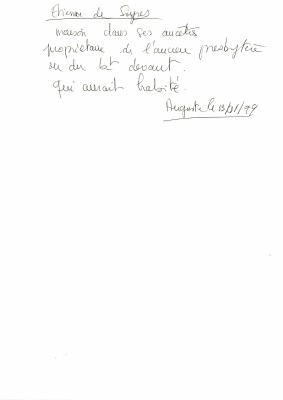 Etienne de Seynes
maison dans ses ancêtres
propriétaire de l'ancien presbytère
ou du bat devant.
qui aurait habité.
le 13/21/99